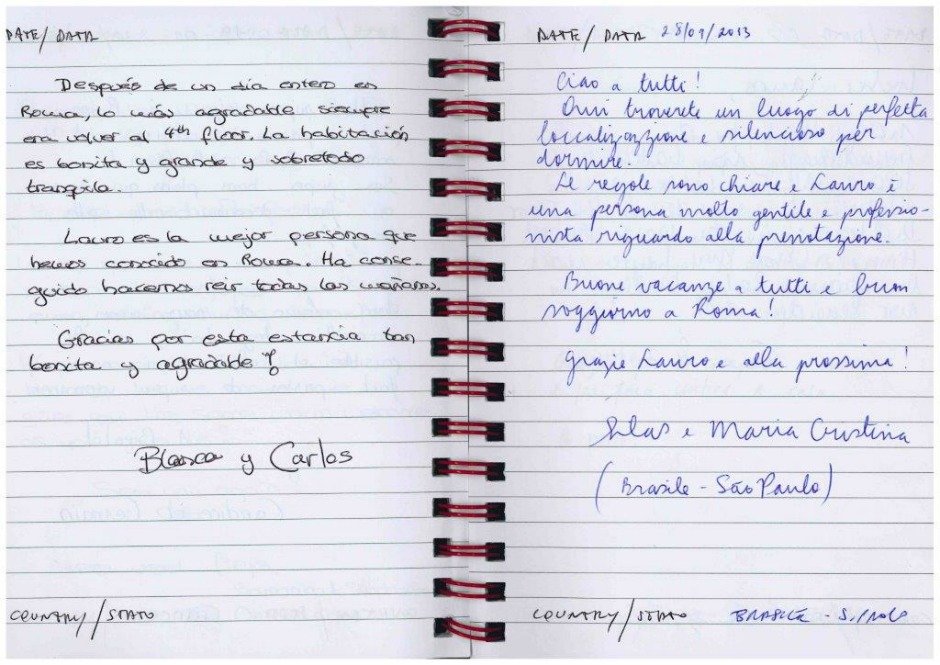 DATE/DATA
Después de un día entero en
Roma, lo más agradable siempre
era volver al 4th floor. La habitación
es bonita y grande y sobretodo
tranquila.
Lauro es la mejor persona que
hemos conocido en Roma. Ha conse-
guido hacernos reir todas las mañanas.
Gracias por esta estancia tan
bonita y agradable!
Blanca y Carlos
COUNTRY/STATO
DATE/DATA 28/09/2013
Ciao a tutti!
Qui troverete un luogo di perfetta
loccalizazzione e silencioso per
dormire.
Le regole sono chiare e Lauro è
una persona molto gentile e professio-
nista riguardo alla prenotazione.
Buone vacanze a tutti e buon
soggiorno a Roma!
Grazie Lauro e alla prossima!
Silas e Maria Cristina
(Brasile - São Paulo)
COUNTRY/STATO BRASILE - S. PAOLO